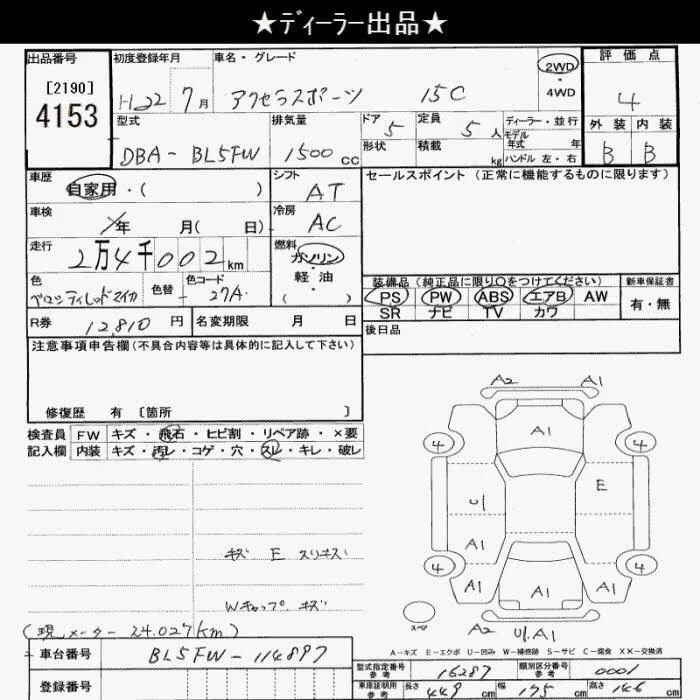 ★ディーラー出品★
出品番号 初度登録年月 車名・グレード 2WD・4WD 評価点
[2190]
4153
H22 7月 アクセラスポーツ 15C 4
型式 排気量 ドア 5 定員 5人 ディーラー・並行 外装 内装
モデル年式 年
DBA-BL5FW 1500cc 形状 積載 kg ハンドル 左・右 B B
車歴 シフト AT セールスポイント (正常に機能するものに限ります)
自家用・( )
車検 年 月( 日) 冷房 AC
走行 2万4千002km 燃料 ガソリン 軽・油 ( )
色 色替 色コード 27A
ベロシティレッドマイカ
装備品 (純正品に限り○をつけてください) 新車保証書
PS PW ABS エアB AW 有・無
SR ナビ TV カワ
R券 12,810円 名変期限 月 日 後日品
注意事項申告欄(不具合内容等は具体的に記入して下さい)
修復歴 有 [箇所 ]
検査員 FW キズ・飛石・ヒビ割・リペア跡・×要
記入欄 内装 キズ・汚レ・コゲ・穴・スレ・キレ・破レ
A2 A1
A1
4 4
U1 E
A1
4 4
A1 A1 A1
スペア A2 U1.A1
キズ E スリキズ
Wキャップ キズ
(現メーター 24.027km)
A-キズ E-エクボ U-凹み W-補修跡 S-サビ C-腐食 XX-交換済
車台番号 BL5FW-114897
型式指定番号 参考 16287 類別区分番号 参考 0001
登録番号
車庫証明用 参考 長さ 449cm 幅 175cm 高さ 146cm